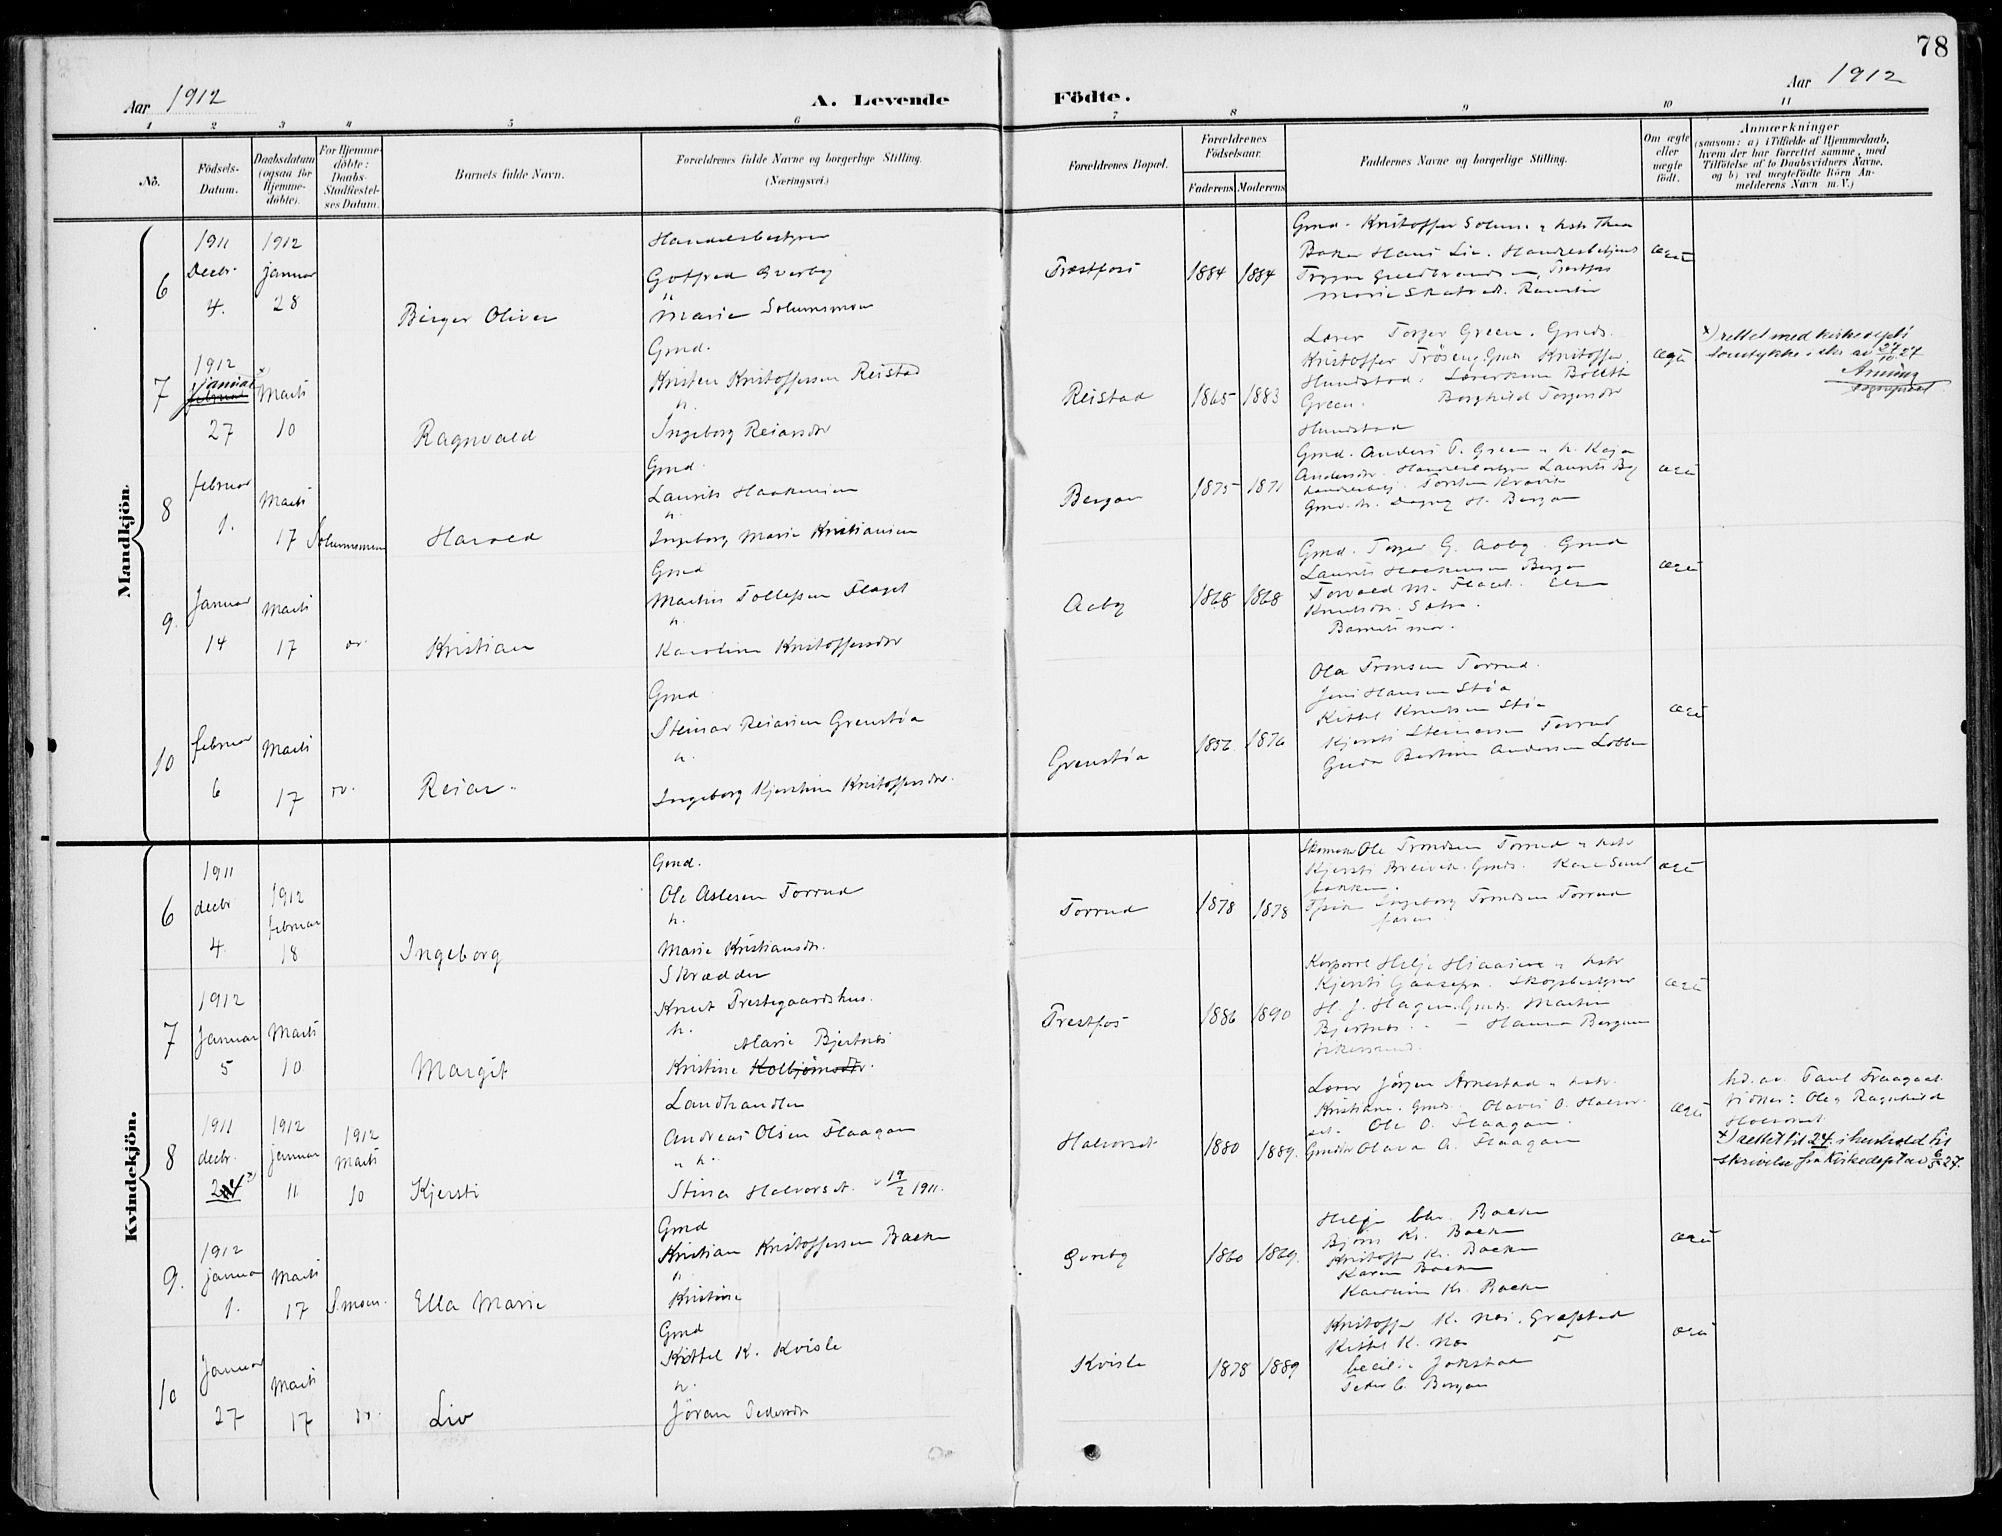 78
Aar 1912
A. Levende Födte.
Aar 1912
1 2 3 4 5 6 7 8 9 10 11
No.
Födsels-
Datum.
Daabsdatum
(ogsaa for
Hjemme-
döbte).
For Hjemme-
döbte:
Daabs-
Stadfæstel-
ses Datum.
Barnets fulde Navn.
Forældrenes fulde Navne og borgerlige Stilling.
(Næringsvei.)
Forældrenes Bopæl.
Forældrenes
Födselsaar.
Faderens Moderens
Faddernes Navne og borgerlige Stilling.
Om ægte
eller
uægte
födt.
Anmærkninger
(saasom: a) i Tilfælde af Hjemmedaab,
hvem der har forrettet samme, med
Tilföielse af to Daabsvidners Navne,
og b) ved uægtefödte Börn An-
melderens Navn m. V.)
Mandkjön.
6
1911
Decbr.
4.
1912
januar
28
Birger Oliver
Handelsbestyrer
Gotfred Overby
Marie Solumsmoen
Træstfoss
1884 1884
Gmd. Kristoffer Solum
Baker Hans Lie. Handelsbetjent
ægte
7
1912
januar
februar
27
Marts
10
Ragnvald
Gmd.
Kristen Kristoffersen Reistad
h.
Ingeborg Reiarsdr
Reistad
1865 1883
Lærer Torger Green. Gmds.
Kristoffer Tröseng, Gmd Kristoffer
Hundstad. Lærerinne
Green. Borghild Torgersdr
Hundstad
ægte
x) rettet med kirkedepts
samtykke i skr. av 27/10 27
8
februar
1.
Marts
17
Solumsmoen
Harald
Gmd.
Laurits Haakensen
h.
Ingeborg Marie Kristiansen
Bergan
1875 1871
Gmd. Anders T. Green h. Kaja
Andersdr. Handelsbestyrer Laurits By
Torsten Kravik
Gmd. h. Dagny H. Bergan
ægte
9.
Januar
14
Marts
17
do.
Kristian
Gmd
Martin Tollefsen Flaget
h.
Karoline Kristoffersdr
Aaby
1868 1868
Gmd. Torger G. Aaby. Gmd
Laurits Haakensen Bergan
Torvald M. Flaget.
Barnets mor.
ægte
10
februar
6
Marts
17
do.
Reiar
Gmd
Steinar Reiarsen Grenstöa
h.
Ingeborg Kjerstine Kristoffersdr.
Grenstöa
1856 1876
Ola Tronsen Torrud.
Jens Hansen Stöa
Kittel Knudsen Stöa
Kjersti Steinarsen Torrud
Bertine Andersen
ægte
Kvindekjön.
6
1911
decbr
4.
1912
februar
18
Ingeborg
Gmd.
Ole Aslesen Torrud
h.
Marie Kristiansdr.
Torrud
1878 1878
Skomaker Ole Trondsen Torrud
Kjersti Breivik. Gmds.
Ingeborg Trondsen Torrud
ægte
7
1912
Januar
5
Marts
10
Margit
Skrædder
Knut Prestegaardshus.
h.
Marie Bjertnes
Kristine Kolbjörnsdtr.
Træstfos
1886 1890
Korporal Helje
Kjersti Skogsbestyrer
H. J. Hagen. Gmds. Marten
Bjertnes. Hanna Bergan
ægte
8
1911
decbr.
24 x)
1912
januar
11
1912
Marts
10
Kjersti
Landhandler
Andreas Olsen Flaagan
h.
Stina Halvorset. v 19/2 1911.
Halvorset
1880 1889.
Lærer Jörgen Arnestad
Kristiane. Gmds. Olaves O. Halvor-
set. Ole O. Flaagan.
Gmdsdtr Olava A. Flaagan
ægte
hd. av Paul Fraagaat.
Vidner: Ole og Ragnhild
Halvorset.
x) rettet til 24. i henhold til
skrivelse fra Kirkedept av 6/5 27.
9.
1912
januar
1.
Marts
17
S.moen.
Ella Marie
Gmd
Kristian Kristoffersen Baaken
h.
Kristine
Overby
1860 1869.
Helje Chr. Baaken
Björn Kr. Baaken
Kristoffer Kr. Baaken
Karen Baaken
Karoline Kr. Baaken
ægte
10
Januar
27
Marts
17
do.
Liv
Gmd
Kittel K. Kvisle
h.
Jöran Pedersdr
Kvisle
1878 1889
Kristoffer K. Nes. Grafstad
Kittel K. Nes
Cecilie Jokstad
Peder C. Bergan
ægte